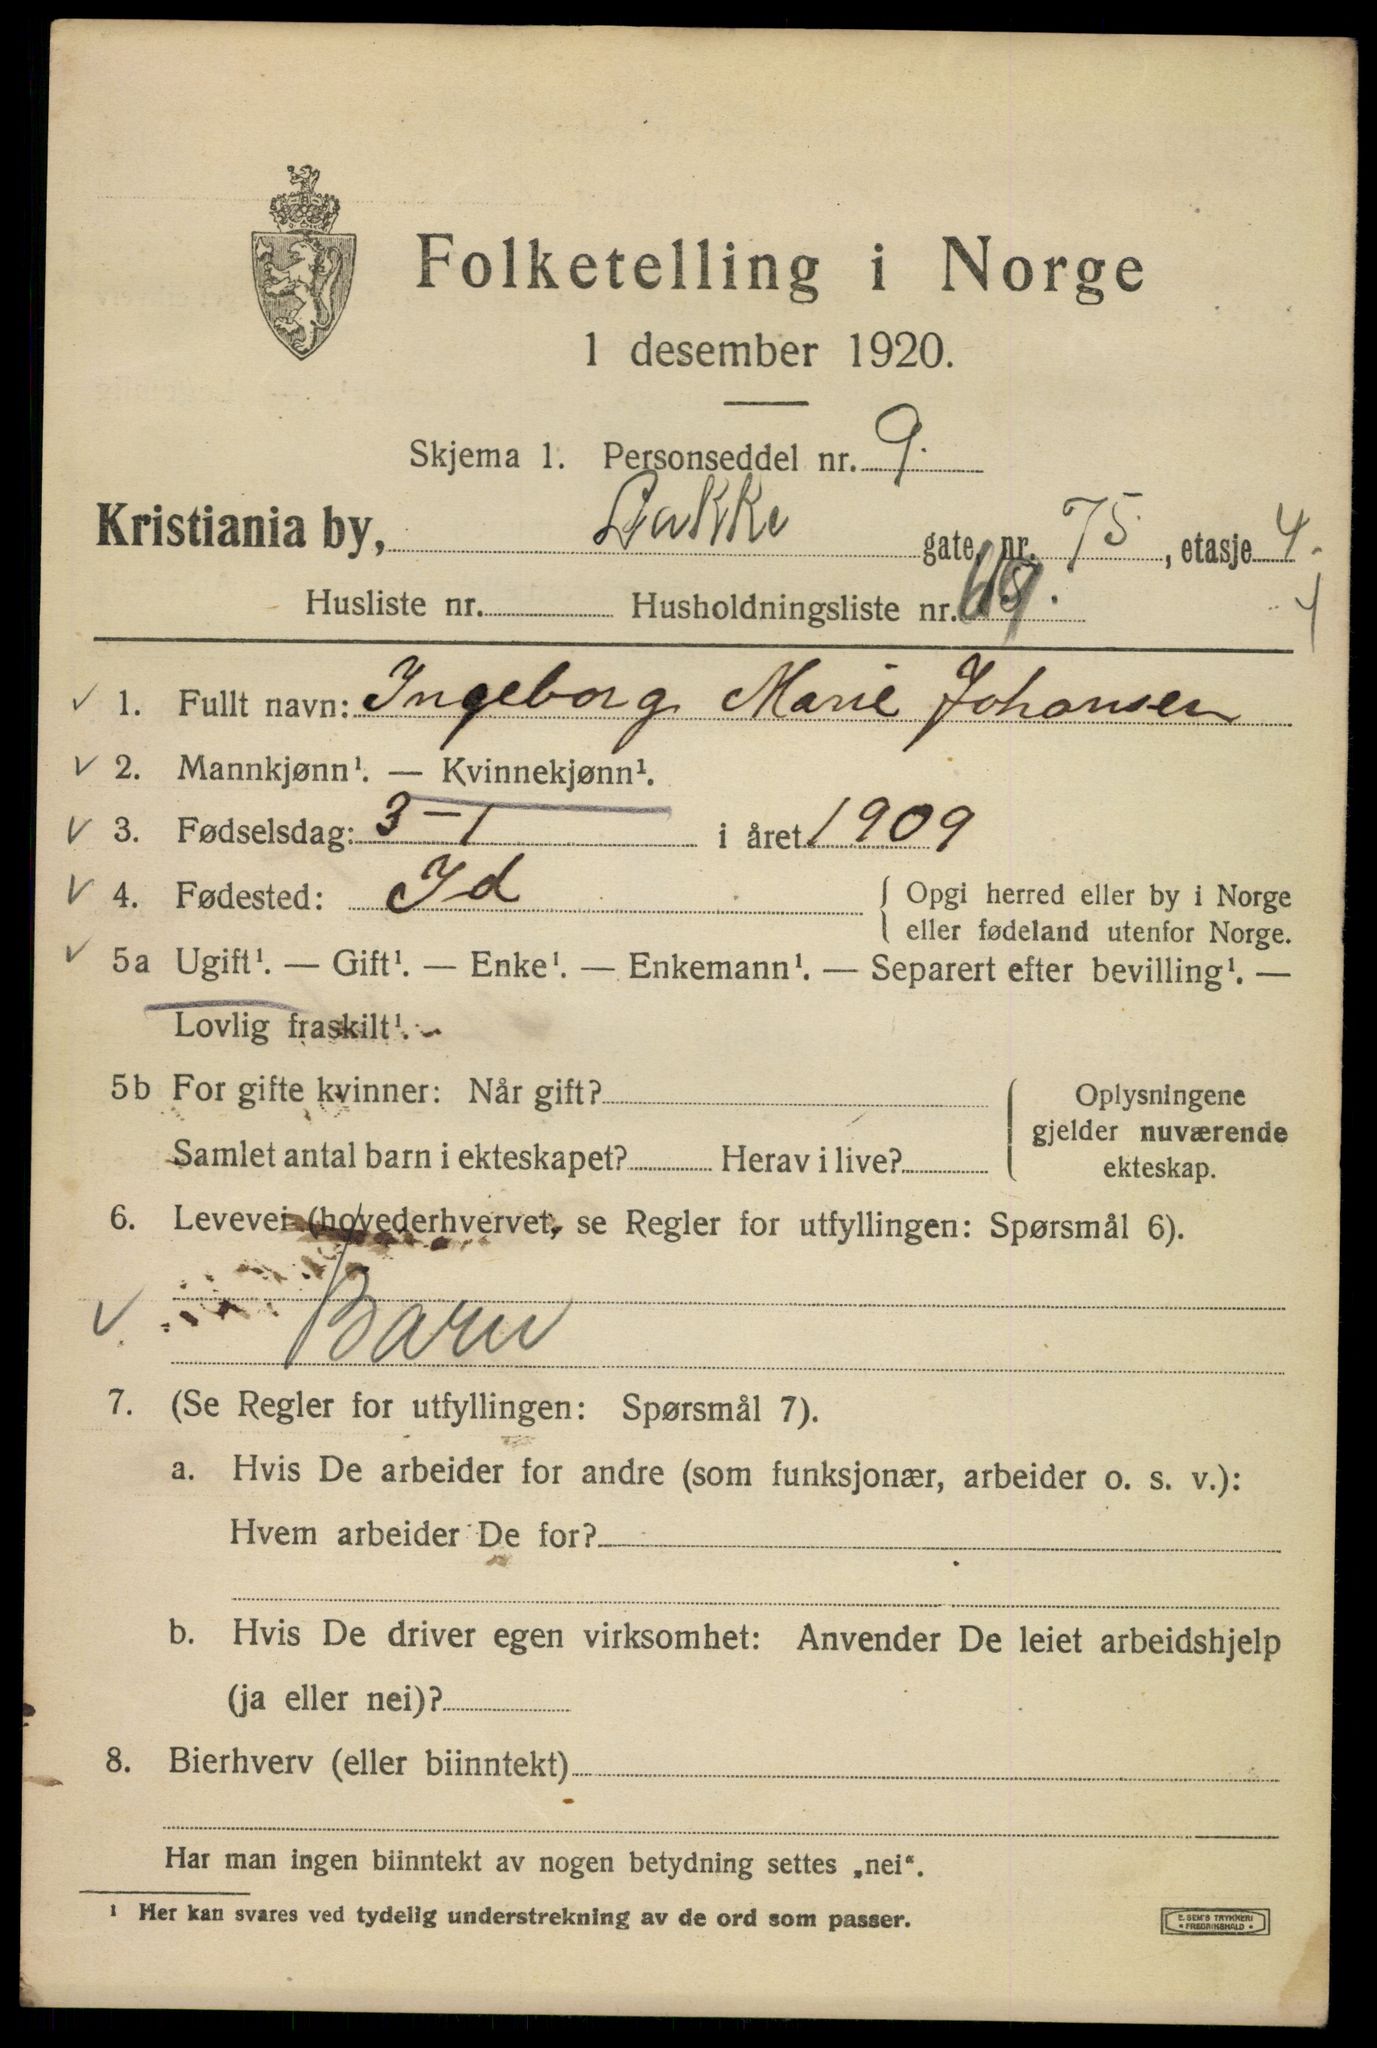 Folketelling i Norge
1 desember 1920.
Skjema 1. Personseddel nr. 9.
Kristiania by, Dakke gate, nr. 75, etasje 4.
Husliste nr. Husholdningsliste nr. 4
1. Fullt navn: Ingeborg Marie Johansen
2. Mannkjønn¹. — Kvinnekjønn¹.
3. Fødselsdag: 3-1 i året 1909
4. Fødested: Id { Opgi herred eller by i Norge
eller fødeland utenfor Norge.
5a Ugift¹. — Gift¹. — Enke¹. — Enkemann¹. — Separert efter bevilling¹. —
Lovlig fraskilt¹.
5b For gifte kvinner: Når gift? Oplysningene
gjelder nuværende
Samlet antal barn i ekteskapet? Herav i live? ekteskap.
6. Levevei (hovederhvervet, se Regler for utfyllingen: Spørsmål 6).
Barn
7. (Se Regler for utfyllingen: Spørsmål 7).
a. Hvis De arbeider for andre (som funksjonær, arbeider o. s. v.):
Hvem arbeider De for?
b. Hvis De driver egen virksomhet: Anvender De leiet arbeidshjelp
(ja eller nei)?
8. Bierhverv (eller biinntekt)
Har man ingen biinntekt av nogen betydning settes „nei“.
¹ Her kan svares ved tydelig understrekning av de ord som passer.
E. SEM'S TRYKKERI
• FREDRIKSHALD •